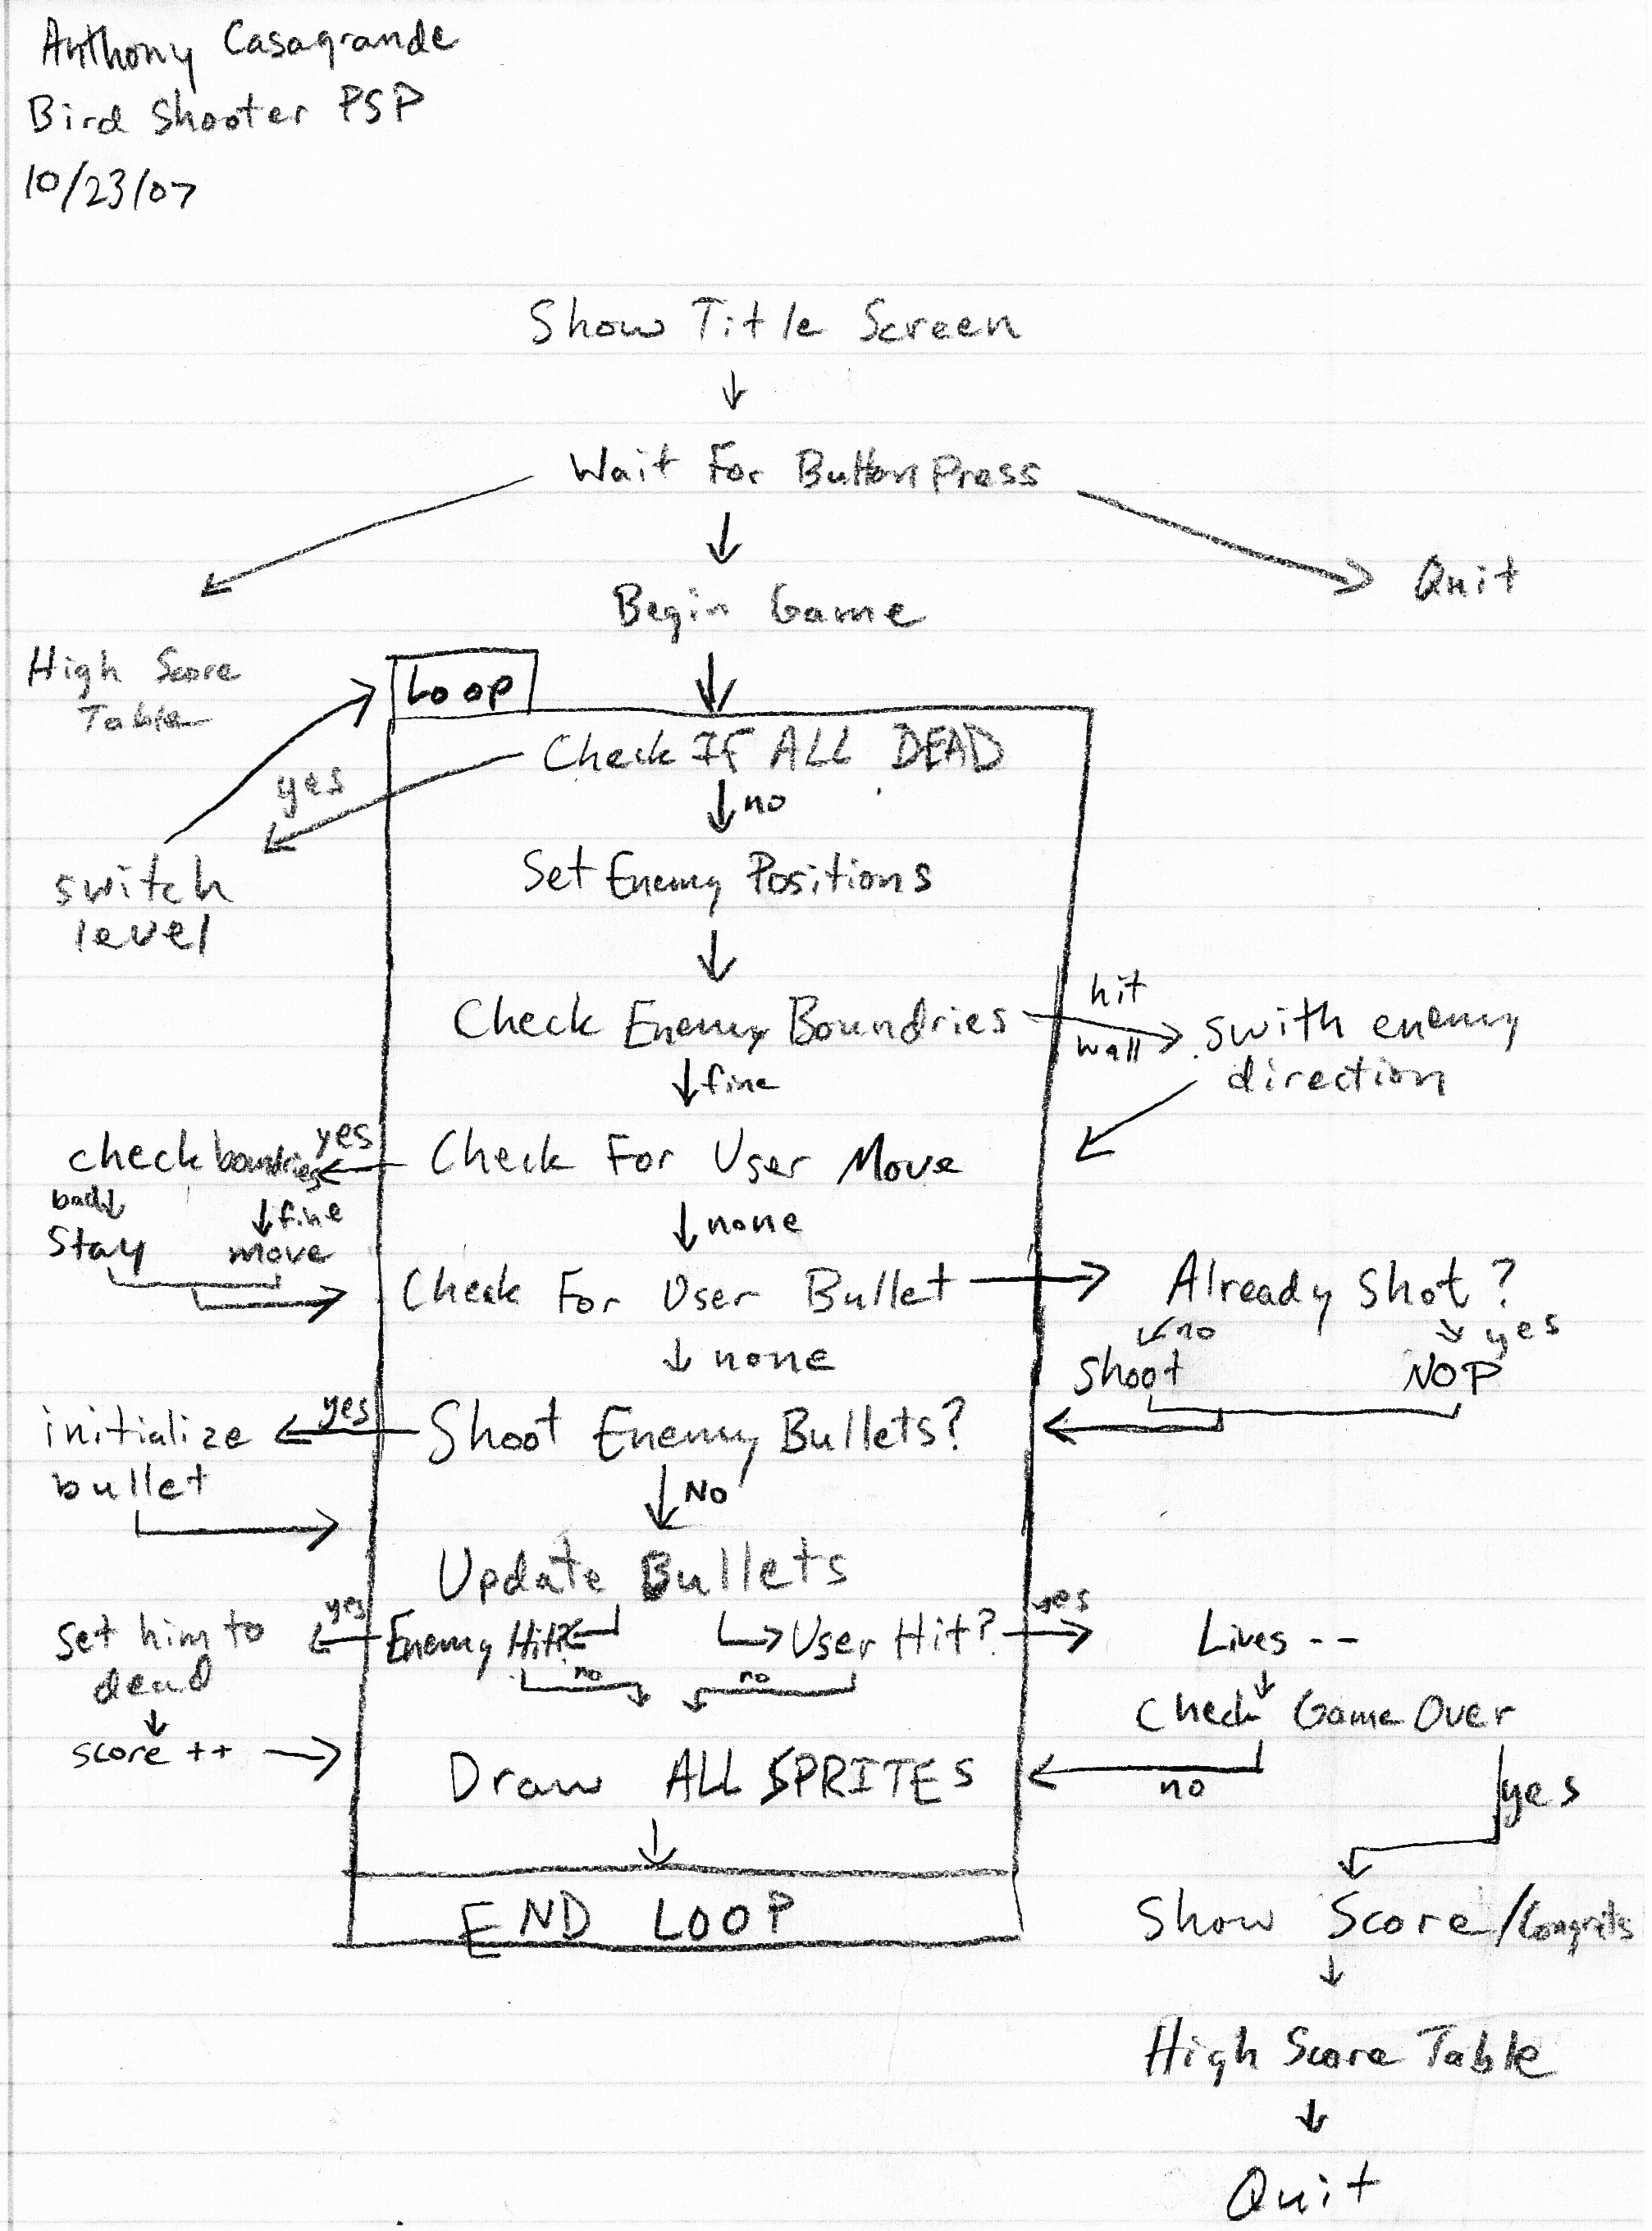 Anthony Casagrande
Bird Shooter PSP
10/23/07
Show Title Screen
Wait For Button Press
Quit
Begin Game
High Score
Table
Loop
Check If ALL DEAD
yes
no
switch
level
Set Enemy Positions
Check Enemy Boundries
hit
wall
swith enemy
direction
fine
Check For User Move
yes
check boundries
bad
fine
Stay
move
none
Check For User Bullet
Already Shot?
no
yes
Shoot
NOP
none
Shoot Enemy Bullets?
yes
initialize
bullet
No
Update Bullets
Enemy Hit?
User Hit?
yes
set him to
dead
score ++
no
no
yes
Lives --
Check Game Over
no
yes
Draw ALL SPRITES
END LOOP
Show Score/Congrats
High Score Table
Quit